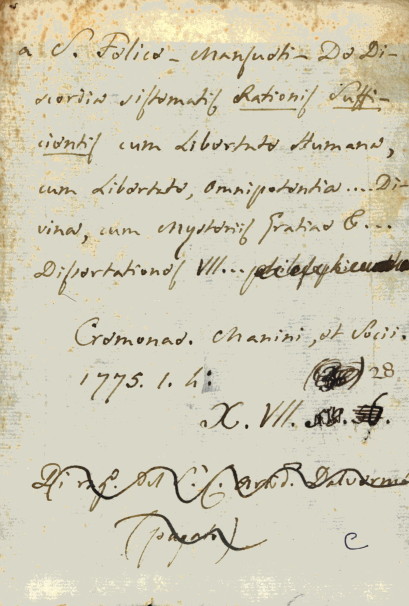 a S. Felice - Mansueti - De Di-
scordia sistematis Rationis Suffi-
cientis cum Libertate Humana,
cum Libertate, Omnipotentia .... Di-
vina, cum Mysteriis Gratiae &...
Dissertationes VII...
Cremonae. Manini, et Socii.
1775. 1. 4:
28
X. VII.
Del
(pagato)
C